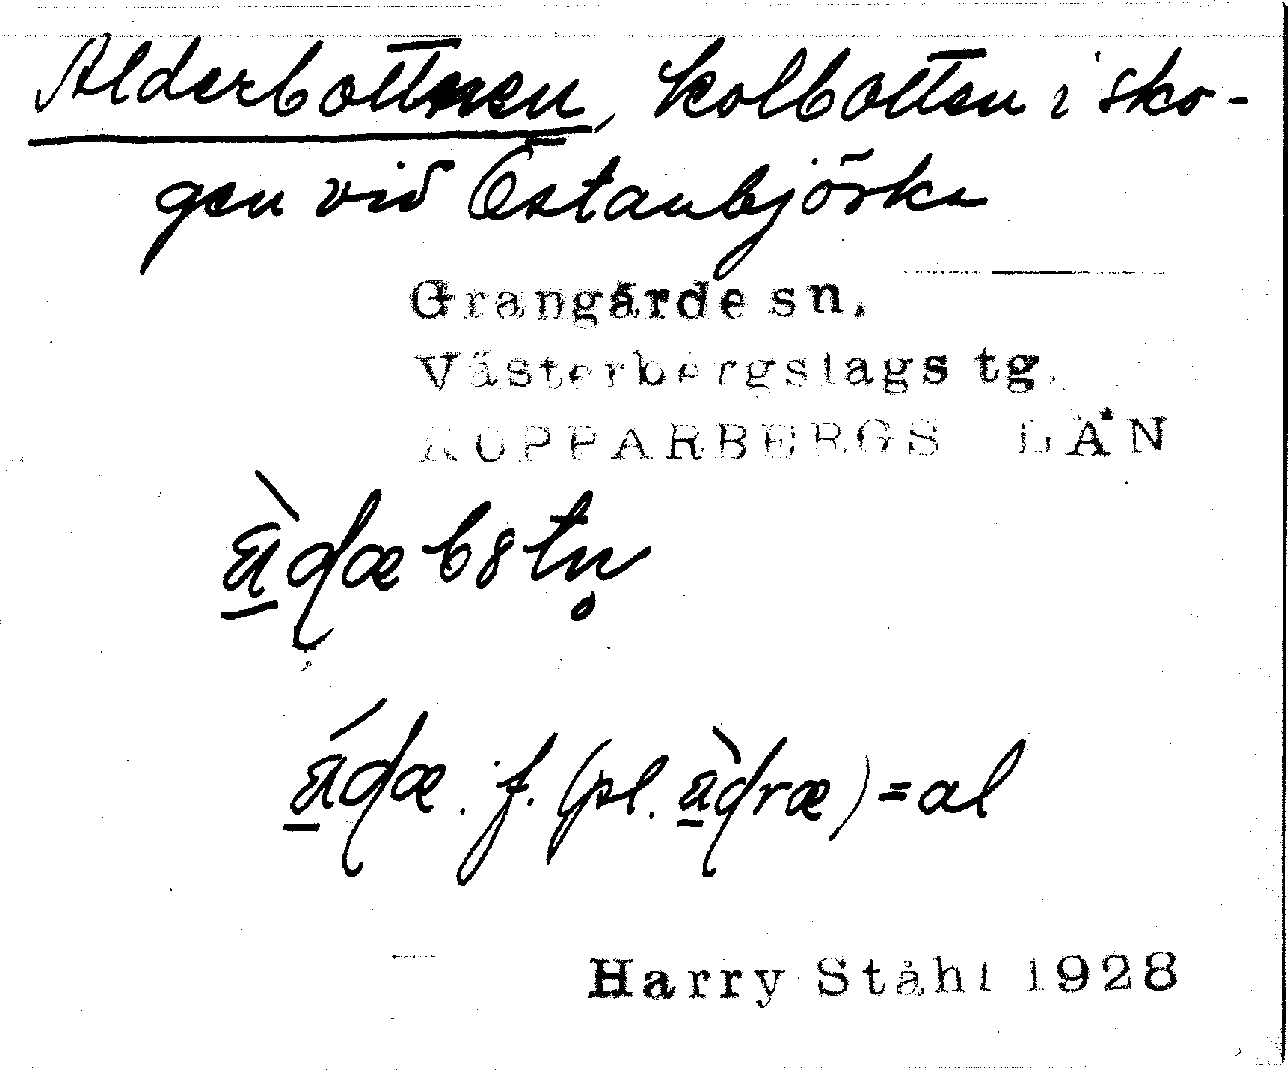 Alderbottnen, kolbotten i sko-
gen vid Östanbjörka
Grangärde sn.
Västerbergslags tg.
KOPPARBERGS LÄN
f. (pl. ) = al
Harry Ståhl 1928